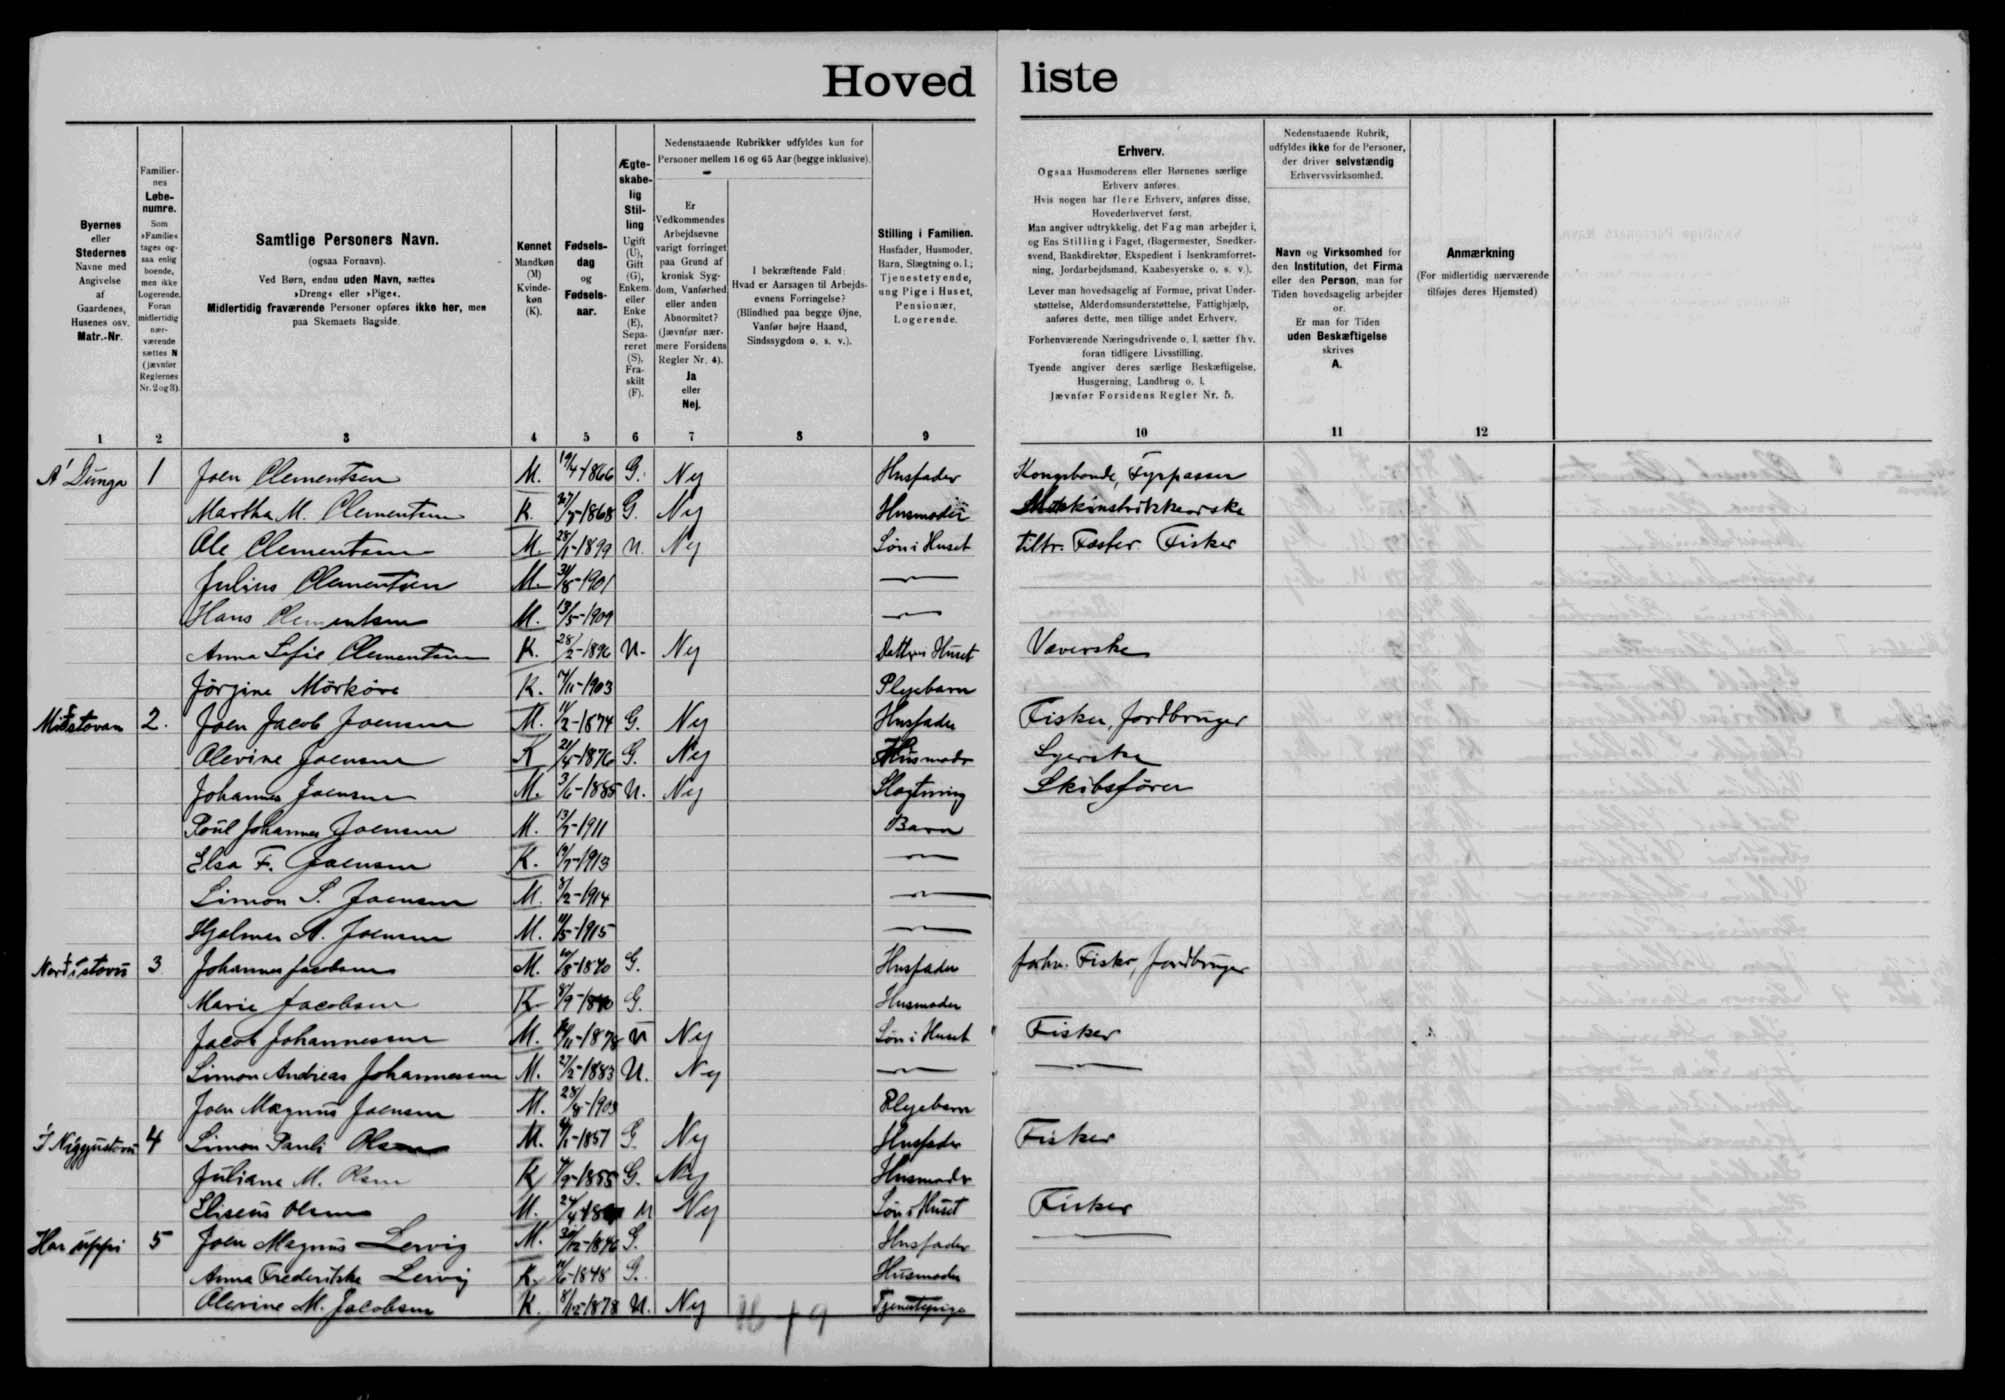 Hoved liste
Byernes
eller
Stedernes
Navne med
Angivelse
af
Gaardenes,
Husenes osv.
Matr.-Nr.
Familier-
nes
Løbe-
numre.
Som
»Familie«
tages og-
saa enlig
boende,
men ikke
Logerende.
Foran
midlertidig
nær-
værende
sættes N
(jævnfør
Reglernes
Nr. 2 og 3).
Samtlige Personers Navn.
(ogsaa Fornavn).
Ved Børn, endnu uden Navn, sættes
»Dreng« eller »Pige«.
Midlertidig fraværende Personer opføres ikke her, men
paa Skemaets Bagside.
Kønnet
Mandkøn
(M)
Kvinde-
køn
(K).
Fødsels-
dag
og
Fødsels-
aar.
Ægte-
skabe-
lig
Stil-
ling
Ugift
(U),
Gift
(G),
Enkem.
eller
Enke
(E),
Sepa-
reret
(S),
Fra-
skilt
(F).
Nedenstaaende Rubrikker udfyldes kun for
Personer mellem 16 og 65 Aar (begge inklusive).
Er
Vedkommendes
Arbejdsevne
varigt forringet
paa Grund af
kronisk Syg-
dom, Vanførhed
eller anden
Abnormitet?
(Jævnfør nær-
mere Forsidens
Regler Nr. 4).
Ja
eller
Nej.
I bekræftende Fald:
Hvad er Aarsagen til Arbejds-
evnens Forringelse?
(Blindhed paa begge Øjne,
Vanfør højre Haand,
Sindssygdom o. s. v.).
Stilling i Familien.
Husfader, Husmoder,
Barn, Slægtning o. l.;
Tjenestetyende,
ung Pige i Huset,
Pensionær,
Logerende.
Erhverv.
Ogsaa Husmoderens eller Børnenes særlige
Erhverv anføres.
Hvis nogen har flere Erhverv, anføres disse,
Hovederhvervet først.
Man angiver udtrykkelig, det Fag man arbejder i,
og Ens Stilling i Faget, (Bagermester, Snedker-
svend, Bankdirektør, Ekspedient i Isenkramforret-
ning, Jordarbejdsmand, Kaabesyerske o. s. v.).
Lever man hovedsagelig af Formue, privat Under-
støttelse, Alderdomsunderstøttelse, Fattighjælp,
anføres dette, men tillige andet Erhverv.
Forhenværende Næringsdrivende o. l. sætter fhv.
foran tidligere Livsstilling.
Tyende angiver deres særlige Beskæftigelse,
Husgerning, Landbrug o. l.
Jævnfør Forsidens Regler Nr. 5.
Nedenstaaende Rubrik,
udfyldes ikke for de Personer,
der driver selvstændig
Erhvervsvirksomhed.
Navn og Virksomhed for
den Institution, det Firma
eller den Person, man for
Tiden hovedsagelig arbejder
for.
Er man for Tiden
uden Beskæftigelse
skrives
A.
Anmærkning
(For midlertidig nærværende
tilføjes deres Hjemsted)
1 2 3 4 5 6 7 8 9 10 11 12
A' Dunga 1 Joen Clementsen M. 19/4-1866 G. Nej Husfader Kongsbonde, Fyrpasser
Martha M. Clementsen K. 1868 G. Nej Husmoder
Ole Clementsen M. 28/1-1899 U. Nej Søn i Huset Fisker
Julius Clementsen M. 1901 —
Hans Clementsen M. 13/5-1909 —
Anna Sofie Clementsen K. 28/2-1896 U. Nej Datter i Huset Væverske
Jörgine Mörköre K. 1903 Plejebarn
Miðstovan 2. Joen Jacob Joensen M. 1874 G. Nej Husfader Fisker, Jordbruger
Olevine Joensen K 1876 G. Nej Husmoder Syerske
Johannes Joensen M. 3/6-1885 U. Nej Slægtning Skibsfører
Poul Johannes Joensen M. 1911 Barn
Elsa F. Joensen K. 1913 —
Simon S. Joensen M. 8/2-1914 —
Hjalmar A. Joensen M. 1915 —
Norðistovu 3 Johannes Jacobsen M. 1840 G. Husfader forhv. Fisker, Jordbruger
Marie Jacobsen K G. Husmoder
Jacob Johannessen M. 1878 U Nej Søn i Huset Fisker
Simon Andreas Johannessen M. 1883 U. Nej — —
Joen Magnus Joensen M. Plejebarn
Í Niggjustovu 4 Simon Pauli Olsen M. 1857 G. Nej Husfader Fisker
Juliane M. Olsen K 1855 G. Nej Husmoder
Eliseus Olsen M. U Nej Søn i Huset Fisker
Har uppi 5 Joen Magnus Lervig M. 30/12-1846 G. Husfader —
Anna Frederikke Lervig K. 1848 G. Husmoder
Olevine M. Jacobsen K. 8/12-1878 U. Nej Tjenestepige
16 + 9